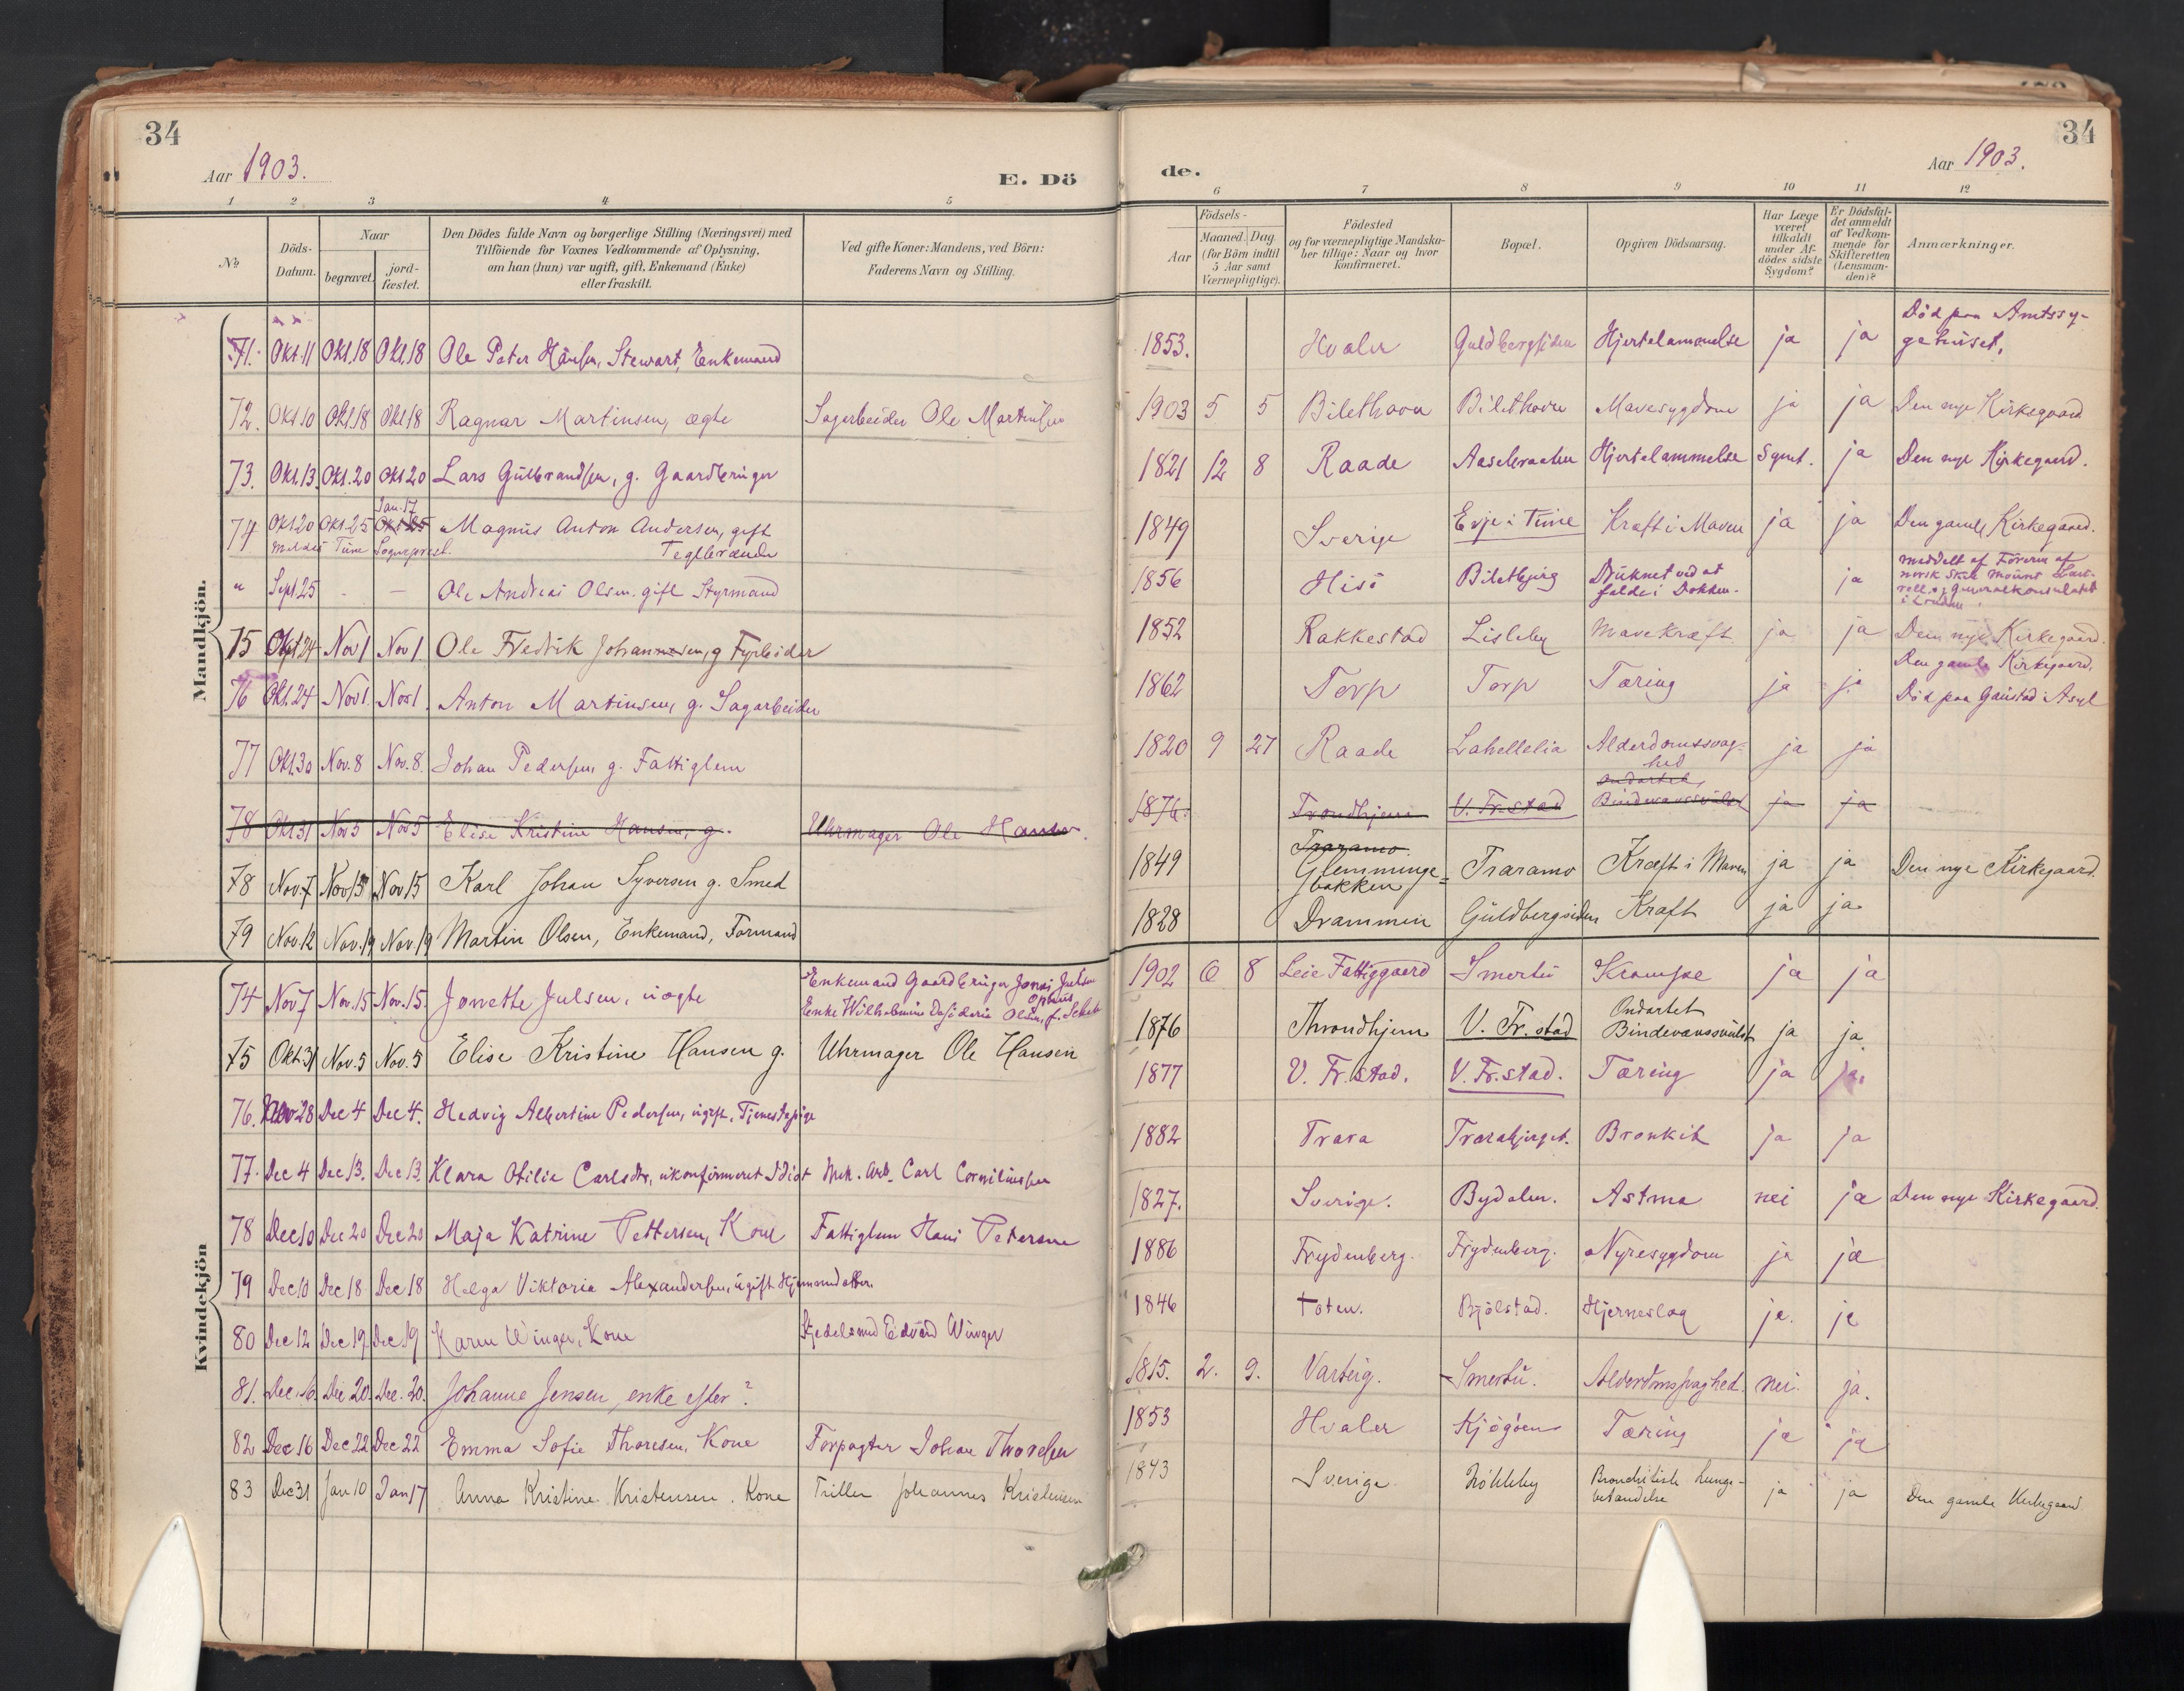 34
Aar 1903.
E. Dö
1 2 3 4 5
No
Döds-Datum.
Naar
begravet.
jord-fæstet.
Den Dödes fulde Navn og borgerlige Stilling (Næringsvei) med
Tilföiende for Voxnes Vedkommende af Oplysning,
om han (hun) var ugift, gift, Enkemand (Enke)
eller fraskilt.
Ved gifte Koner: Mandens, ved Börn:
Faderens Navn og Stilling.
Mandkjön.
71. Okt. 11 Okt. 18 Okt. 18 Ole Peter Hansen, Stewart, Enkemand
72. Okt 10 Okt. 18 Okt 18 Ragnar Martinsen, ægte Sagarbeider Ole Martinsen
73. Okt. 13. Okt. 20 Okt 20 Lars Gulbrandsen, g. Gaardbruger
Jan. 17
74 Okt 20 Okt. 25 Okt 25 Magnus Anton Andersen, gift
meldes Tune Sogneprest. Teglbrænder
" Sept 25 - - Ole Andreas Olsen. gift Styrmand
75 Okt 24 Nov 1 Nov 1 Ole Fredrik Johannesen, g Fyrböder
76 Okt. 24 Nov 1. Nov 1. Anton Martinsen, g. Sagarbeider
77 Okt. 30 Nov. 8 Nov. 8. Johan Pedersen, g. Fattiglem
78 Okt 31 Nov 5 Nov 5 Elise Kristine Hansen, g. Uhrmager Ole Hansen.
78 Nov. 7 Nov 15 Nov 15 Karl Johan Syversen g. Smed
79 Nov. 12 Nov. 19 Nov. 19 Martin Olsen, Enkemand, Formand
Kvindekjön
74 Nov 7 Nov. 15 Nov. 15. Jonette Julsen, uægte Enkemand Gaardbruger Jonas Julsen
Enke Wilhelmine Olsen, f.
75 Okt. 31 Nov. 5 Nov. 5 Elise Kristine Hansen g. Uhrmager Ole Hansen
76. Nov 28 Dec 4 Dec 4. Hedvig Albertine Pedersen, ugift, Tjenestepige
77. Dec 4 Dec 13. Dec 13. Klara Otilie Carlsdtr, ukonfirmeret Idiot Mek. Arb. Carl Corneliussen
78 Dec 10 Dec 20 Dec 20 Maja Katrine Pettersen, Kone Fattiglem Hans Petersen
79 Dec 10 Dec 18 Dec 18 Helga Viktoria Alexandersen, ugift Hjemmedatter.
80 Dec 12 Dec 19. Dec 19 Karen Winger, Kone Edvard Winger
81. Dec. 16. Dec 20. Dec. 20. Johanne Jensen, enke efter?
82 Dec 16 Dec 22 Dec 22 Emma Sofie Thoresen, Kone Forpagter Johan Thoresen
83 Dec 31 Jan 10 Jan 17 Anna Kristine Kristensen. Kone Triller Johannes Kristensen
de.
34
Aar 1903.
6 7 8 9 10 11 12
Födsels-
Aar
Maaned. Dag
(for Börn indtil
5 Aar samt
Værnepligtige).
Födested
og for værnepligtige Mandska-
ber tillige: Naar og hvor
konfirmeret.
Bopæl.
Opgiven Dödsaarsag.
Har Læge
været
tilkaldt
under Af-
dödes sidste
Sygdom?
Er Dödsfal-
det anmeldt
af Vedkom-
mende for
Skifteretten
(Lensman-
den)?
Anmærkninger.
1853. Hvaler Guldbergsiden Hjertelammelse ja ja Död paa Amtssy-
gehuset.
1903 5 5 Bilethavn Bilethavn Mavesygdom ja ja Den nye Kirkegaard
1821 12 8 Raade Aaselraaten Hjertelammelse Synet. ja Den nye Kirkegaard.
1849 Sverige Evje i Tune Kræft i Maven ja ja Den gamle Kirkegaard.
1856 Hisö Biletbjerg Druknet ved at
falde i Dokken. ja meddelt af Föreren af
norsk Skib
Generalkonsulatet
i London.
1852 Rakkestad Lisleby Mavekræft ja ja Den nye Kirkegaard.
1862 Torp Torp Tæring ja ja Den gamle Kirkegaard.
Död paa Gaustad Asyl
1820 9 27 Raade Lahellelia Alderdomssvag-
hed ja ja
1876. Trondhjem V. Fr.stad Ondartet
Bindevævssvulst ja ja
1849 Traramo
Glemminge-
bakken Traramo Kræft i Maven ja ja Den nye Kirkegaard.
1828 Drammen Guldbergsiden Kræft ja ja
1902 6 8 Leie Fattiggaard Smertu Krampe ja ja
1876 Throndhjem V. Fr. stad Ondartet
Bindevævssvulst ja ja.
1877 V. Fr. stad. V. Fr. stad. Tæring ja ja.
1882 Trara Trarabjerget. Bronkit ja ja
1827. Sverige. Bydalen. Astma nei ja Den nye Kirkegaard.
1886 Frydenberg. Frydenberg. Nyresygdom ja ja
1846 Toten. Bjölstad. Hjerneslag ja. ja
1815. 2. 9. Varteig. Smertu. Alderdomssvaghed. nei. ja.
1853 Hvaler Kjögöen Tæring ja ja
1843 Sverige Bronchitisk Lunge-
betændelse ja ja Den gamle Kirkegaard.